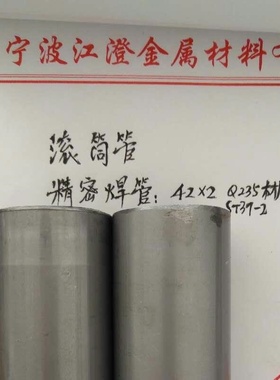 宁波江澄金属材料
滚筒管
精密焊管：42×2 Q235材
ST37-2